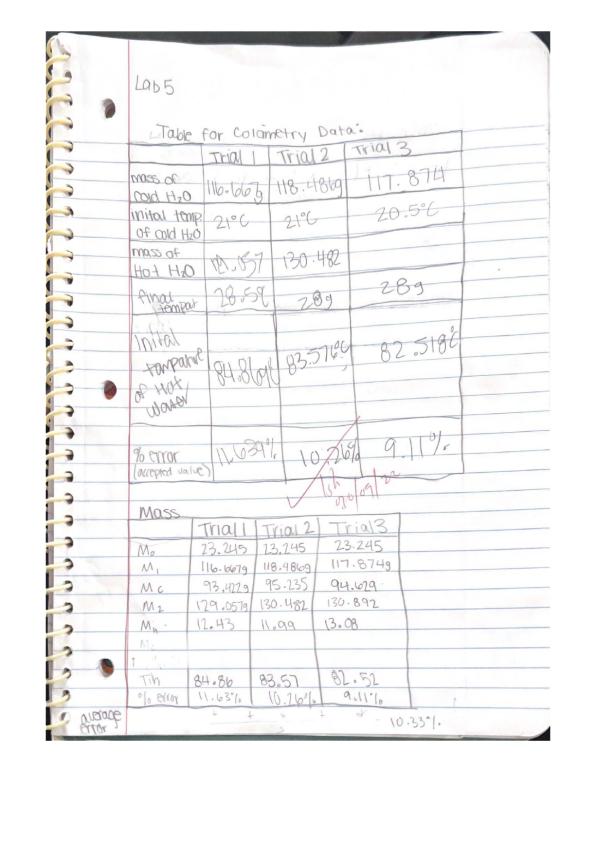 Lab 5
Table for Colametry Data:
Trial 1 Trial 2 Trial 3
mass of cold H₂O 116.667g 118.486g 117.874
inital temp. of cold H₂O 21°C 21°C 20.5°C
mass of Hot H₂O 130.482
final tempat 28.5° 28g 28g
Inital tampature of Hot water 84.869°C 83.576°C 82.518°C
% error (accepted value) 11.639% 10.26% 9.11%
Mass
Trial 1 Trial 2 Trial 3
M₀ 23.245 23.245 23.245
M₁ 116.667g 118.486g 117.874g
Mc 93.422g 95.235 94.629
M₂ 129.057g 130.482 130.892
Mh 12.43 11.99 13.08
Tih 84.86 83.57 82.52
% error 11.63% 10.26% 9.11%
average error 10.33%